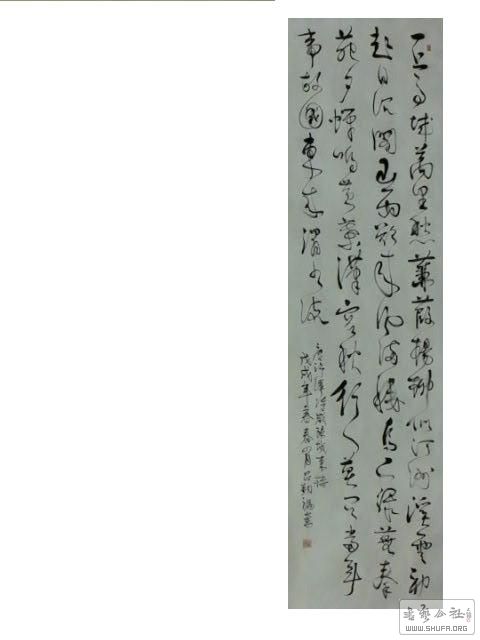 一上高城萬里愁蒹葭楊柳似汀洲溪雲初
起日沉閣山雨欲來風滿樓鳥下綠蕪秦
苑夕蟬鳴黃葉漢宮秋行人莫問當年
事故國東來渭水流
戊戌年暮春
書藝公社
WWW.SHUFA.ORG